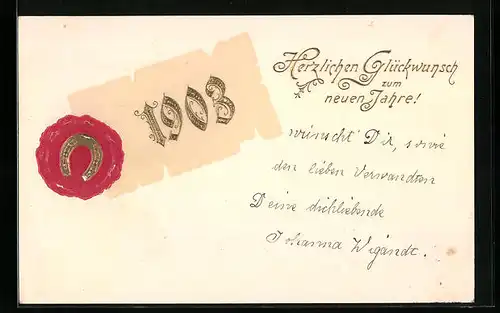 1903
Herzlichen Glückwunsch
zum
neuen Jahre!
wünscht Dir, sowie
den lieben Verwandten
Deine dichliebende
Johanna Wigandt.